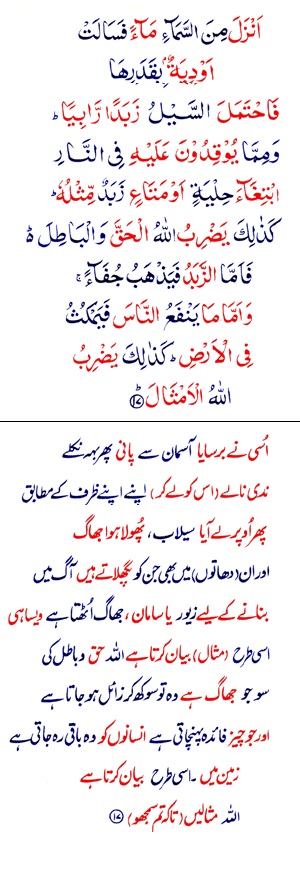 اَنْزَلَ مِنَ السَّمَآءِ مَآءً فَسَالَتْ
اَوْدِيَةٌۢ بِقَدَرِهَا
فَاحْتَمَلَ السَّيْلُ زَبَدًا رَّابِيًا ؕ
وَمِمَّا يُوْقِدُوْنَ عَلَيْهِ فِى النَّارِ
ابْتِغَآءَ حِلْيَةٍ اَوْ مَتَاعٍ زَبَدٌ مِّثْلُهٗ ؕ
كَذٰلِكَ يَضْرِبُ اللّٰهُ الْحَقَّ وَالْبَاطِلَ ؕ۬
فَاَمَّا الزَّبَدُ فَيَذْهَبُ جُفَآءً ۚ
وَاَمَّا مَا يَنْفَعُ النَّاسَ فَيَمْكُثُ
فِى الْاَرْضِ ؕ كَذٰلِكَ يَضْرِبُ
اللّٰهُ الْاَمْثَالَ ؕ ﴿۱۷﴾
اُسی نے برسایا آسمان سے پانی پھر بہہ نکلے
ندی نالے (اس کو لے کر) اپنے اپنے ظرف کے مطابق
پھر اُوپر لے آیا سیلاب، پُھولا ہوا جھاگ
اور ان (دھاتوں) میں بھی جن کو پگھلاتے ہیں آگ میں
بنانے کے لیے زیور یا سامان، جھاگ اُٹھتا ہے ویسا ہی
اسی طرح (مثال) بیان کرتا ہے اللہ حق و باطل کی
سو جو جھاگ ہے وہ تو سوکھ کر زائل ہو جاتا ہے
اور جو چیز فائدہ پہنچاتی ہے انسانوں کو وہ باقی رہ جاتی ہے
زمین میں ۔ اسی طرح بیان کرتا ہے
اللہ مثالیں (تاکہ تم سمجھو) ﴿۱۷﴾